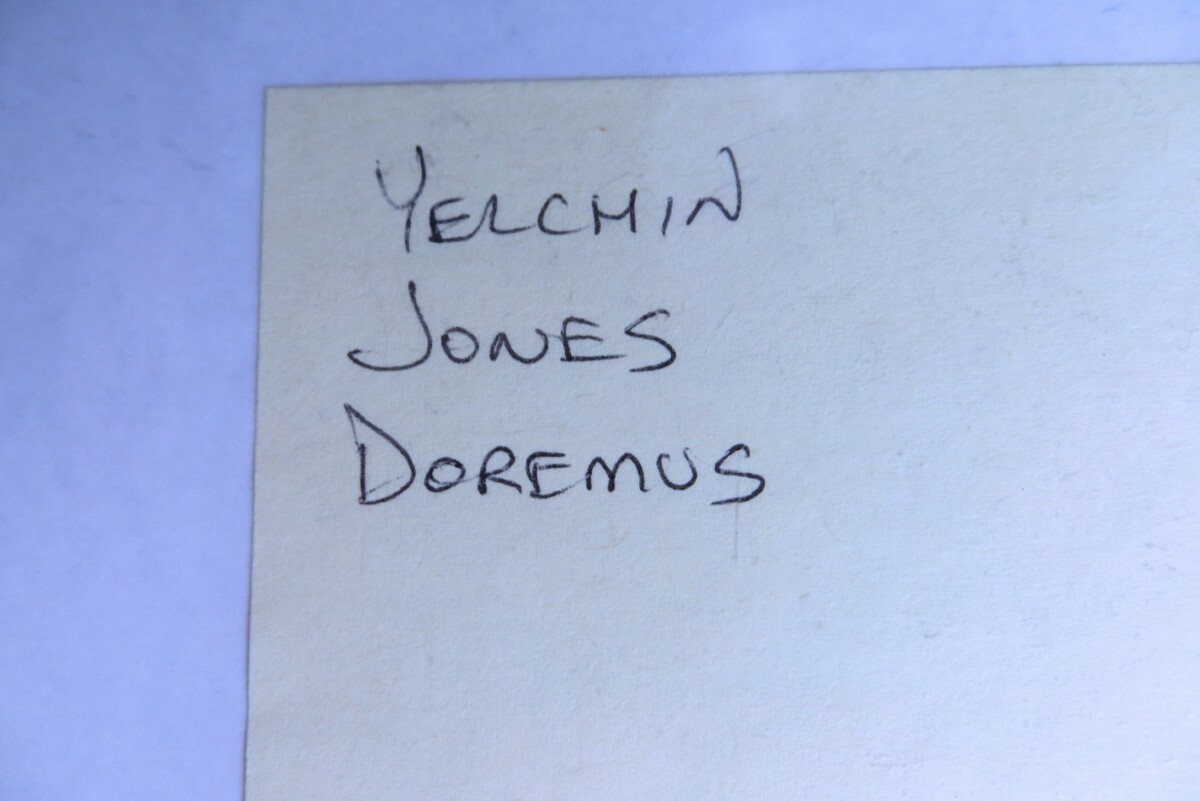 YELCHIN
JONES
DOREMUS